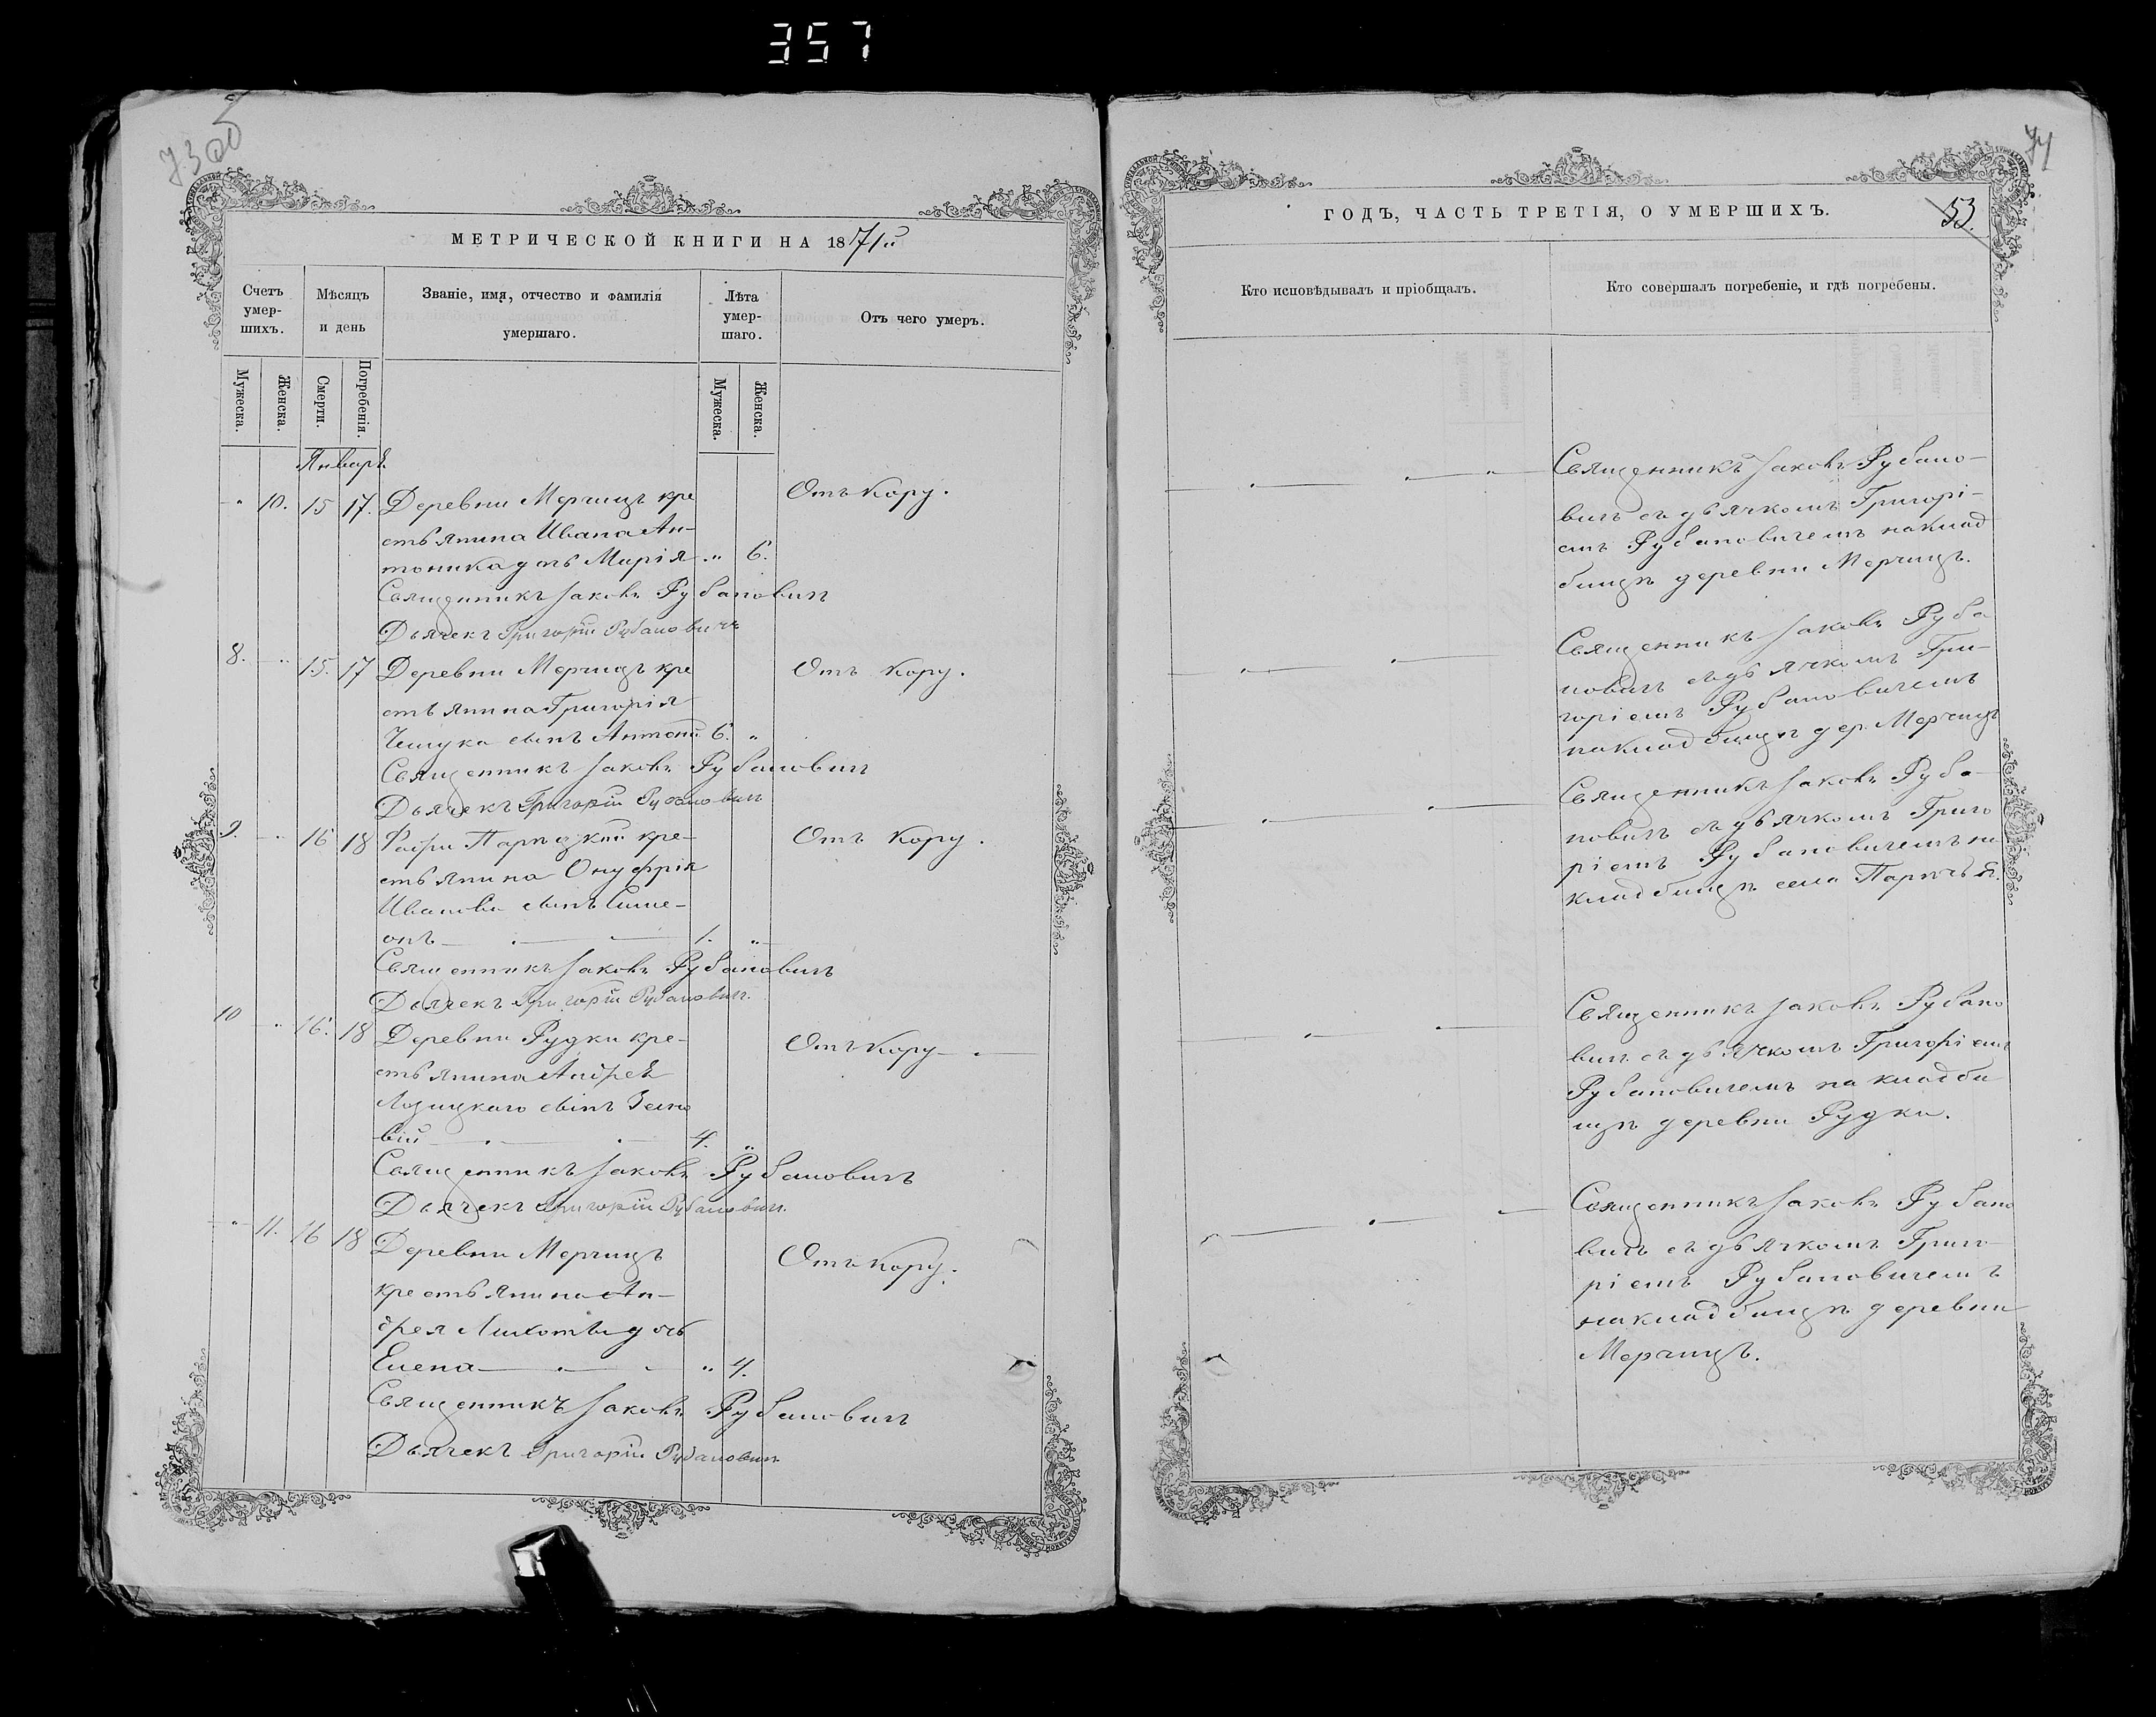 357
73об
МЕТРИЧЕСКОЙ КНИГИ НА 1871й
Счетъ умер-шихъ.
Мѣсяцъ и день
Званіе, имя, отчество и фамилія умершаго.
Лѣта умер-шаго.
Отъ чего умеръ.
Мужеска.
Женска.
Смерти.
Погребенія.
Мужеска.
Женска.
Январь
" 10. 15 17. Деревни Мерчицъ кре Отъ Кору.
стьянина Ивана Ан-
тоника дочь Марія " 6.
Священникъ Іаковъ Рубановичъ
Дьячекъ Григорій Рубановичъ
8. " 15. 17 Деревни Мерчицъ кре Отъ Кору.
стьянина Григорія
сынъ Антоній 6. "
Священникъ Іаковъ Рубановичъ
Дьячекъ Григорій Рубановичъ
9. " 16 18 кре- Отъ Кору.
стьянина Онуфрія
Иванова сынъ Симе-
онъ 1. "
Священникъ Іаковъ Рубановичъ
Дьячекъ Григорій Рубановичъ
10 " 16. 18 Деревни Рудки кре- Отъ Кору
стьянина Андрея
Лозицкаго сынъ Зено
вій 4. "
Священникъ Іаковъ Рубановичъ
Дьячекъ Григорій Рубановичъ.
" 11. 16 18 Деревни Мерчицъ Отъ Кору.
крестьянина Ан-
дрея дочь
Елена " 4.
Священникъ Іаковъ Рубановичъ
Дьячекъ Григорій Рубановичъ
74
ГОДЪ, ЧАСТЬ ТРЕТІЯ, О УМЕРШИХЪ.
53.
Кто исповѣдывалъ и пріобщалъ.
Кто совершалъ погребеніе, и гдѣ погребены.
Священникъ Іаковъ Рубано-
вичъ съ дьячкомъ Григорі-
емъ Рубановичемъ на клад
бищѣ деревни Мерчицъ.
Священникъ Іаковъ Руба
новичъ съ дьячкомъ Гри-
горіемъ Рубановичемъ
на кладбищѣ дер. Мерчицъ
Священникъ Іаковъ Руба-
новичъ съ дьячкомъ Григо
ріемъ Рубановичемъ на
кладбищѣ села
Священникъ Іаковъ Рубано
вичъ съ дьячкомъ Григоріемъ
Рубановичемъ на кладби
щѣ деревни Рудки.
Священникъ Іаковъ Рубано
вичъ съ дьячкомъ Григо-
ріемъ Рубановичемъ
на кладбищѣ деревни
Мерчицъ.